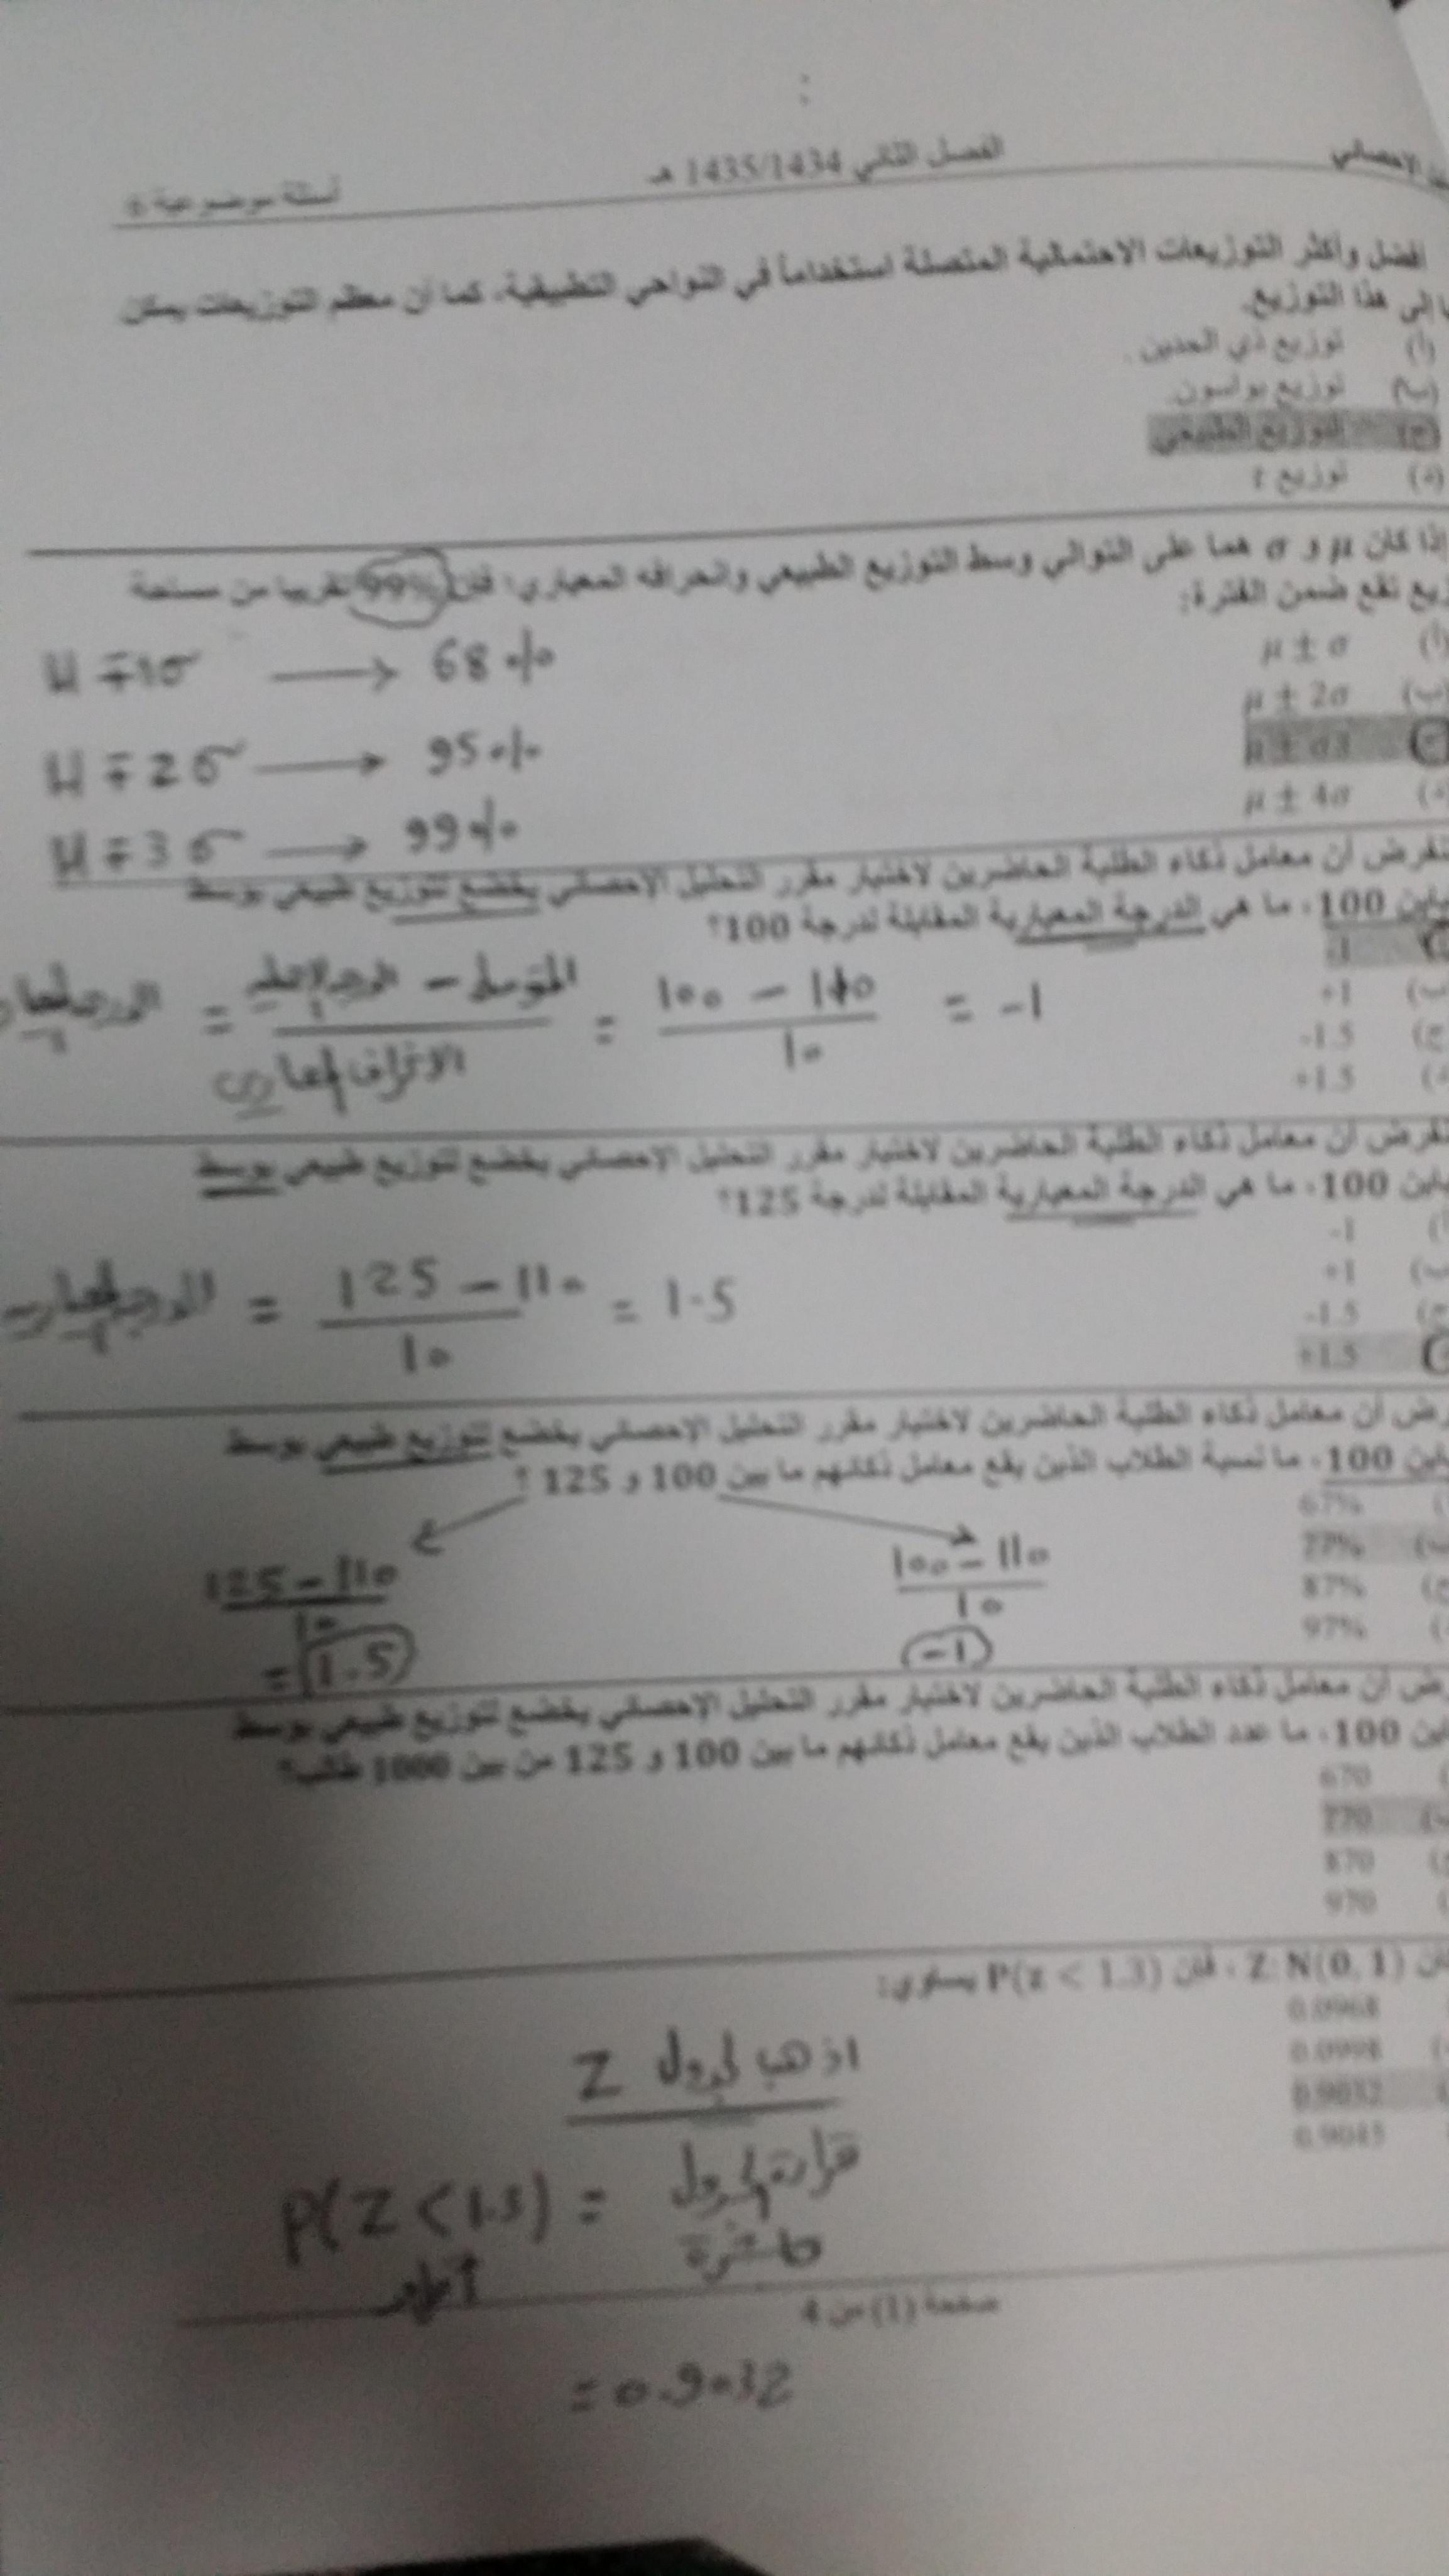 الإحصائي
الفصل الثاني 1435/1434 هـ
أسئلة موضوعية 6
أفضل وأكثر التوزيعات الاحتمالية المتصلة استخداماً في النواحي التطبيقية، كما أن معظم التوزيعات يمكن
إلى هذا التوزيع.
(أ) توزيع ذي الحدين.
(ب) توزيع بواسون.
(ج) التوزيع الطبيعي
(د) توزيع t
إذا كان μ و σ هما على التوالي وسط التوزيع الطبيعي وانحرافه المعياري؛ فإن 99% تقريبا من مساحة
تقع ضمن الفترة:
μ ± σ
(ب) μ ± 2σ
μ ± σ3
μ ± 4σ
μ ∓ 1σ ⟶ 68%
μ ∓ 2σ ⟶ 95%
μ ∓ 3σ ⟶ 99%
نفرض أن معامل ذكاء الطلبة الحاضرين لاختبار مقرر التحليل الإحصائي يخضع لتوزيع طبيعي بوسط
100، ما هي الدرجة المعيارية المقابلة لدرجة 100؟
-1
+1
-1.5
+1.5
= المتوسط −
الانحراف المعياري
= 100 − 110 / 10 = -1
نفرض أن معامل ذكاء الطلبة الحاضرين لاختبار مقرر التحليل الإحصائي يخضع لتوزيع طبيعي بوسط
100، ما هي الدرجة المعيارية المقابلة لدرجة 125؟
-1
+1
-1.5
+1.5
= 125 − 110 / 10 = 1.5
أن معامل ذكاء الطلبة الحاضرين لاختبار مقرر التحليل الإحصائي يخضع لتوزيع طبيعي بوسط
100، ما نسبة الطلاب الذين يقع معامل ذكائهم ما بين 100 و 125 ؟
67%
77%
87%
97%
100 − 110 / 10
-1
125 − 110 / 10
= 1.5
أن معامل ذكاء الطلبة الحاضرين لاختبار مقرر التحليل الإحصائي يخضع لتوزيع طبيعي بوسط
100، ما عدد الطلاب الذين يقع معامل ذكائهم ما بين 100 و 125 من بين 1000 طالب؟
670
770
870
970
Z: N(0, 1) ، فإن P(z < 1.3) يساوي:
0.0968
0.0998
0.9032
0.9045
اذهب لجدول Z
P(Z < 1.3) = قراءة الجدول
مباشرة
أصغر
صفحة (1) من 4
= 0.9032